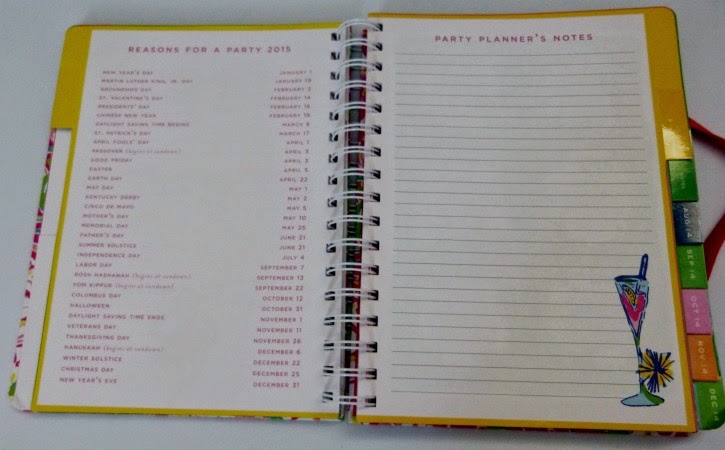 REASONS FOR A PARTY 2015
NEW YEAR'S DAY JANUARY 1
MARTIN LUTHER KING, JR. DAY JANUARY 19
GROUNDHOG DAY FEBRUARY 2
ST. VALENTINE'S DAY FEBRUARY 14
PRESIDENTS' DAY FEBRUARY 16
CHINESE NEW YEAR FEBRUARY 19
DAYLIGHT SAVING TIME BEGINS MARCH 8
ST. PATRICK'S DAY MARCH 17
APRIL FOOLS' DAY APRIL 1
PASSOVER (begins at sundown) APRIL 3
GOOD FRIDAY APRIL 3
EASTER APRIL 5
EARTH DAY APRIL 22
MAY DAY MAY 1
KENTUCKY DERBY MAY 2
CINCO DE MAYO MAY 5
MOTHER'S DAY MAY 10
MEMORIAL DAY MAY 25
FATHER'S DAY JUNE 21
SUMMER SOLSTICE JUNE 21
INDEPENDENCE DAY JULY 4
LABOR DAY SEPTEMBER 7
ROSH HASHANAH (begins at sundown) SEPTEMBER 13
YOM KIPPUR (begins at sundown) SEPTEMBER 22
COLUMBUS DAY OCTOBER 12
HALLOWEEN OCTOBER 31
DAYLIGHT SAVING TIME ENDS NOVEMBER 1
VETERANS DAY NOVEMBER 11
THANKSGIVING DAY NOVEMBER 26
HANUKKAH (begins at sundown) DECEMBER 6
WINTER SOLSTICE DECEMBER 22
CHRISTMAS DAY DECEMBER 25
NEW YEAR'S EVE DECEMBER 31
PARTY PLANNER'S NOTES
AUG 14
SEP 14
OCT 14
NOV 14
DEC 14